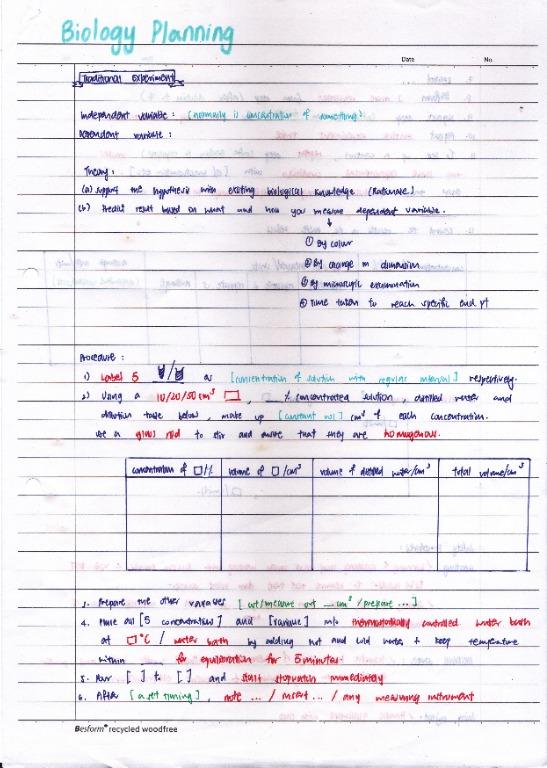 Biology Planning
Date No.
Traditional Experiment
Independent variable : [normally is concentration of something]
Dependent variable :
Theory :
(a) support the hypothesis with existing biological knowledge (Rationale)
(b) Predict result based on what and how you measure dependent variable.
↓
① By colour
② By change in dimension
③ By microscopic examination
④ Time taken to reach specific end pt
Procedure :
1) Label 5 / as [concentration of solution with regular interval] respectively.
2) Using a 10/20/50 cm³ □, __ % concentrated solution, distilled water and
dilution table below, make up [constant vol] cm³ of each concentration.
Use a glass rod to stir and ensure that they are homogenous.
concentration of □/% volume of □/cm³ volume of distilled water/cm³ total volume/cm³
3. Prepare the other variables [cut/measure out __ cm³/prepare ...]
4. Place all [5 concentrations] and [ ] into thermostatically controlled water bath
at □°C / water bath by adding hot and cold water to keep temperature
within __ for equilibration for 5 minutes.
5. Pour [ ] to [ ] and start stopwatch immediately
6. After [a set timing], note ... / insert ... / any measuring instrument
Besform® recycled woodfree